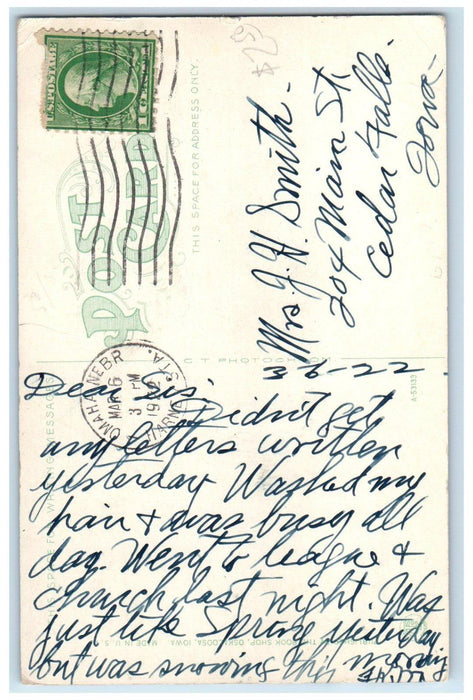 U.S. POSTAGE
$25
POST CARD
THIS SPACE FOR ADDRESS ONLY.
Mrs J. H. Smith -
204 Main St.
Cedar Falls -
Iowa -
OMAHA, NEBR.
MAR 6
3 PM
1922
STA.
C T PHOTOCHROM
A-53133
THIS SPACE FOR WRITING MESSAGES
3-6-22
Dear Sis; Didn't get
any letters written
yesterday Washed my
hair & was busy all
day. Went to league &
church last night. Was
just like Spring yesterday
but was snowing this morning
BOOK SHOP, OSKALOOSA, IOWA. MADE IN U.S.